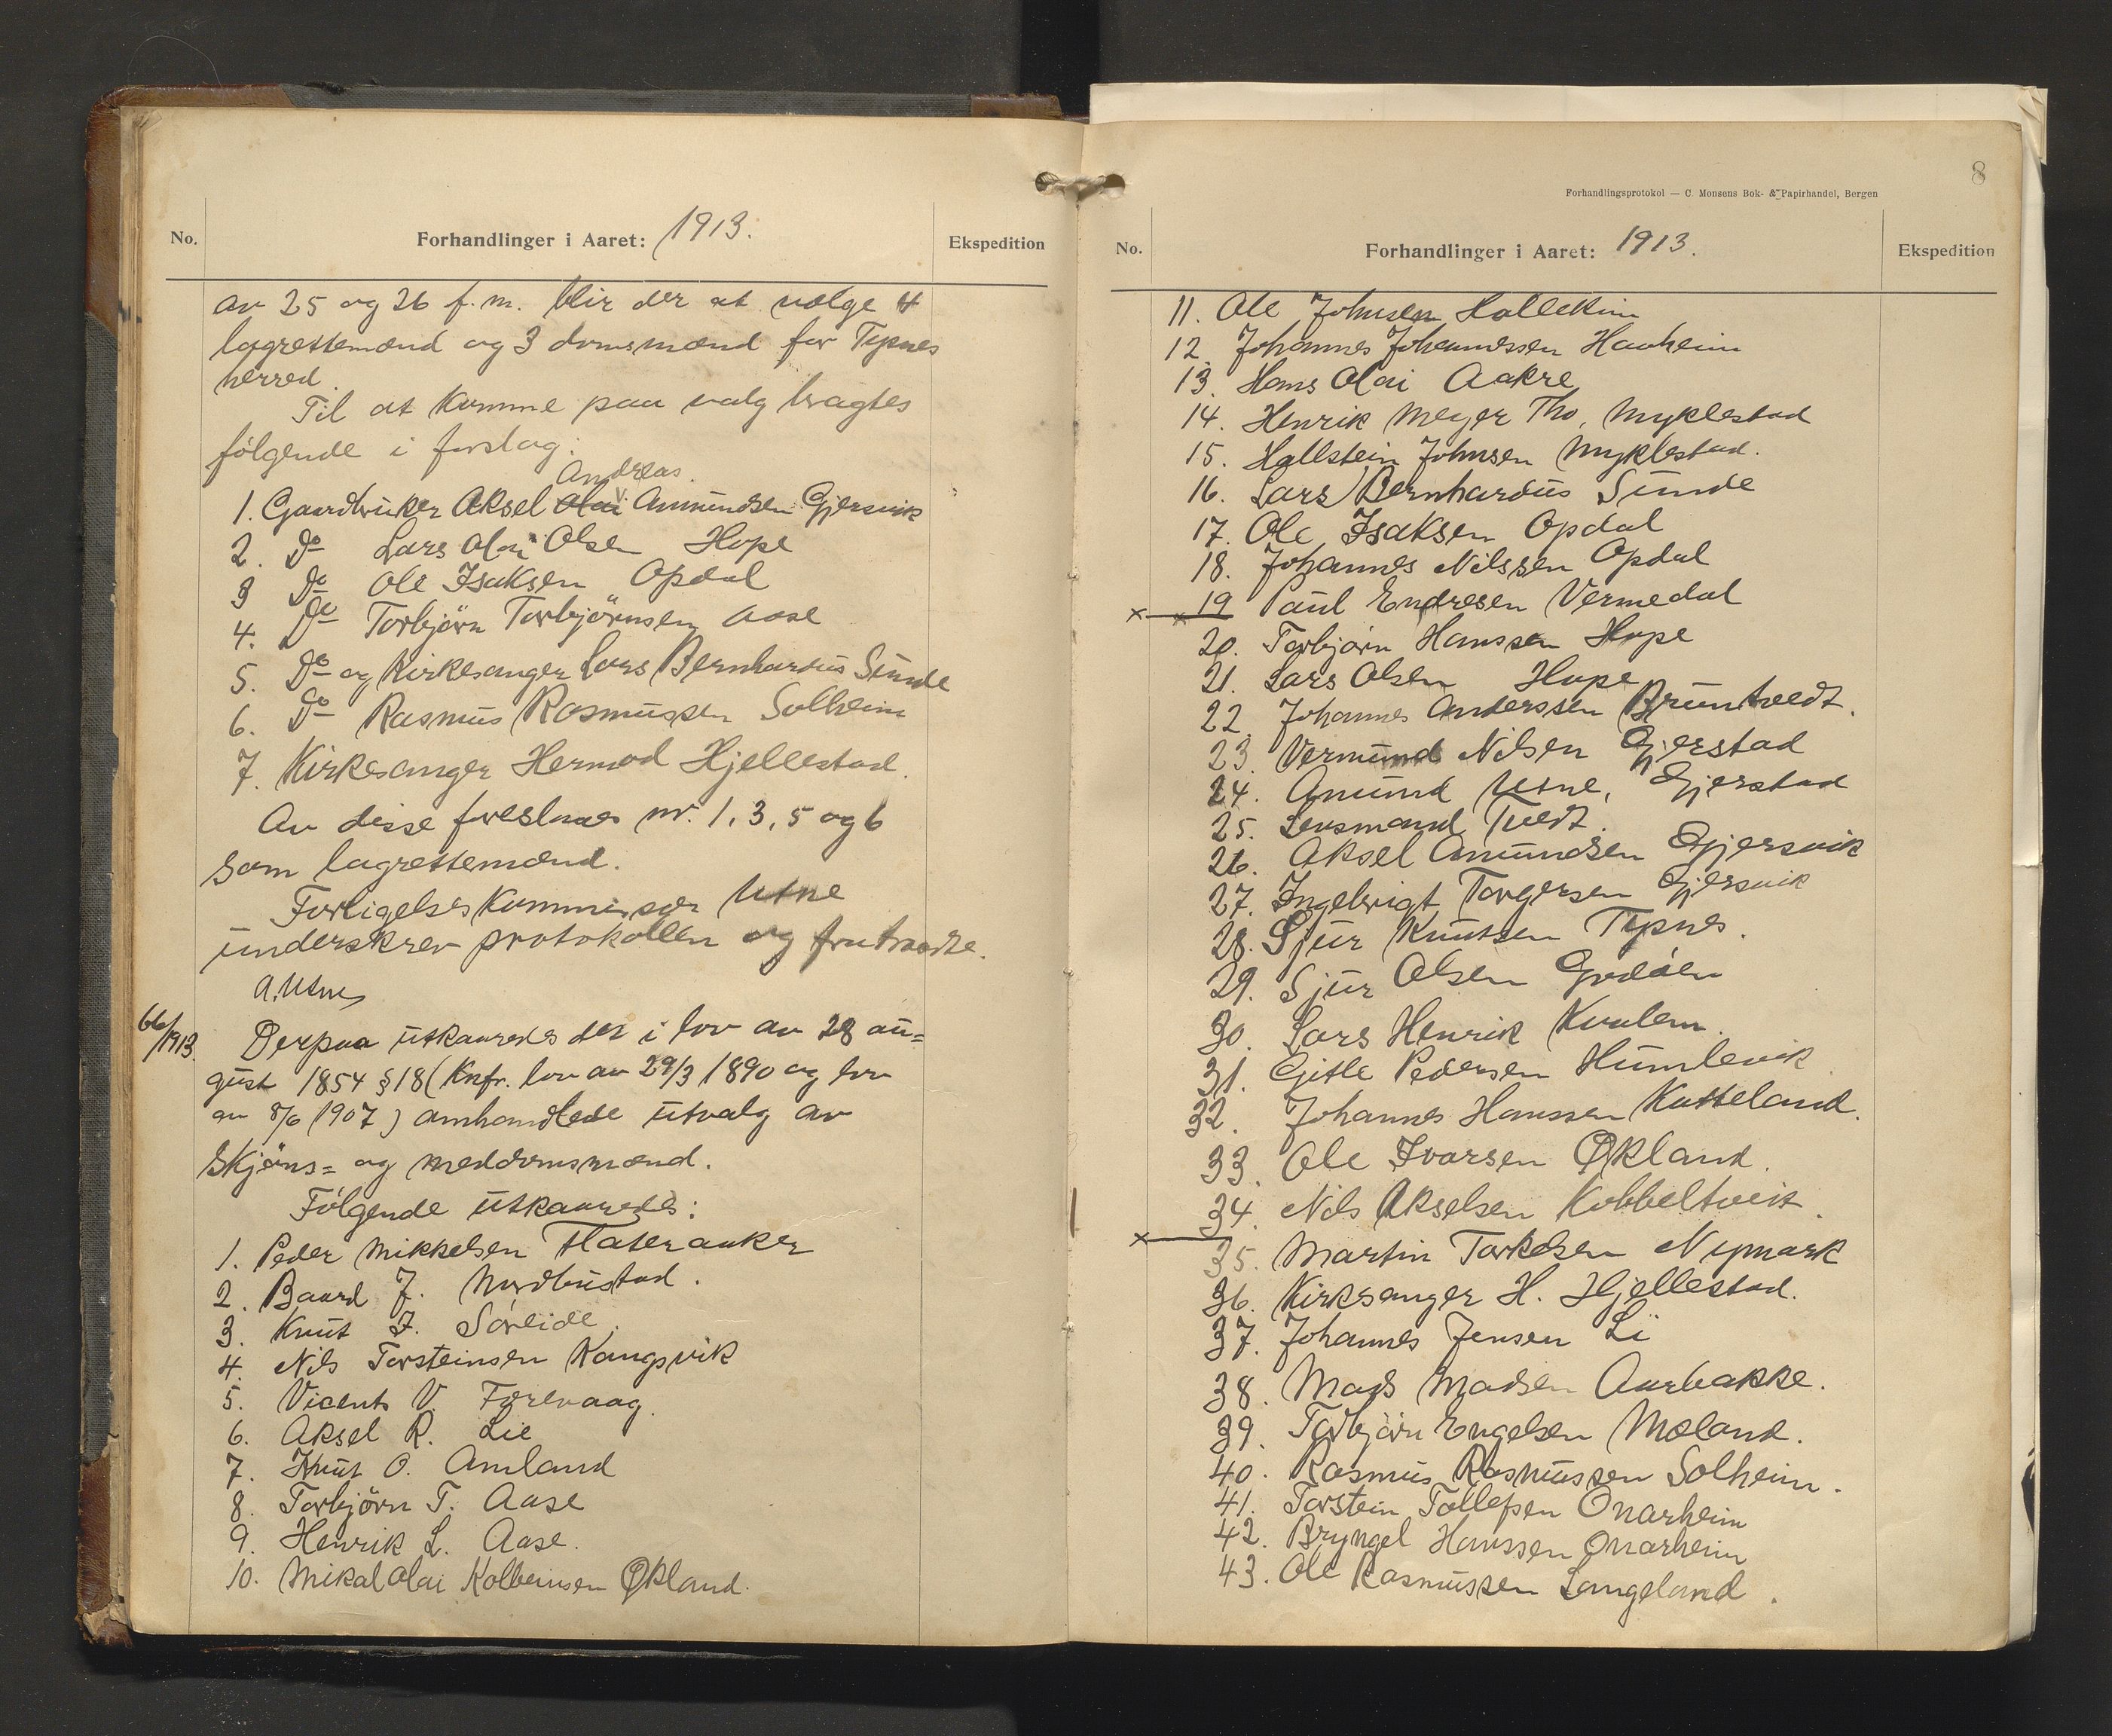 No.
Forhandlinger i Aaret: 1913.
Ekspedition
av 25 og 26 f.m. blir der at vælge 4
lagrettemænd og 3 domsmænd for Tysnes
herred.
Til at komme paa valg bragtes
følgende i forslag:
Andreas
1. Gaardbruker Aksel Olai Amundsen Gjersvik
2. Do Lars Olai Olsen Hope
3 Do Ole Isaksen Opdal
4. Do Torbjörn Torbjörnsen Aase
5. Do og Kirkesanger Lars Bernhardus Sunde
6. Do Rasmus Rasmussen Solheim
7. Kirkesanger Hermod Hjellestad.
Av disse foreslaaes nr. 1, 3, 5 og 6
som lagrettemænd.
Forligelseskommissær Utne
underskrev protokollen og fratraadte.
A. Utne
66/1913.
Derpaa utkaaredes det i lov av 28 au=
gust 1854 § 18 (Knfr. lov av 29/3 1890 og lov
av 8/6 1907) omhandlede utvalg av
Skjöns= og meddomsmænd.
Følgende utkaaredes:
1. Peder Mikkelsen Flateraaker
2. Baard J. Nordbustad.
3. Knut I. Söreide.
4. Nils Torsteinsen Kongsvik
5. Vicents V. Færevaag.
6. Aksel R. Lie
7. Knut O. Amland
8. Torbjörn T. Aase
9. Henrik L. Aase.
10. Mikal Olai Kolbeinsen Økland.
8
Forhandlingsprotokol — C. Monsens Bok- & Papirhandel, Bergen
No.
Forhandlinger i Aaret: 1913.
Ekspedition
11. Ole Johnsen Hallekim
12. Johannes Johannessen Hovheim
13. Hans Olai Aakre
14. Henrik Meyer Tho, Myklestad
15. Hallstein Johnsen Myklestad.
16. Lars Bernhardus Sunde
17. Ole Isaksen Opdal
18. Johannes Nilssen Opdal
x x 19 Paul Endresen Vermedal
20. Torbjörn Hanssen Hope
21. Lars Olsen Hope
22. Johannes Anderssen Bruntvedt.
23. Vermund Nilsen Gjerstad
24. Amund Utne, Gjerstad
25. Lensmand Tvedt.
26. Aksel Amundsen Gjersvik
27. Ingebrigt Torgersen Gjersvik
28. Sjur Knutsen Tysnes.
29. Sjur Olsen Godöen
30. Lars Henrik Kvalem.
31. Gitle Pedersen Humlevik
32. Johannes Hanssen Katteland.
33. Ole Ivarsen Økland.
34. Nils Akselsen Kobbeltveit.
x 35. Martin Torkelsen Nymark
36. Kirksanger H. Hjellestad.
37. Johannes Jensen Li
38. Mads Madsen Aurbakke.
39. Torbjörn Engelsen Mæland.
40. Rasmus Rasmussen Solheim.
41. Torstein Tollefsen Onarheim
42. Bryngel Hanssen Onarheim
43. Ole Rasmussen Langeland.